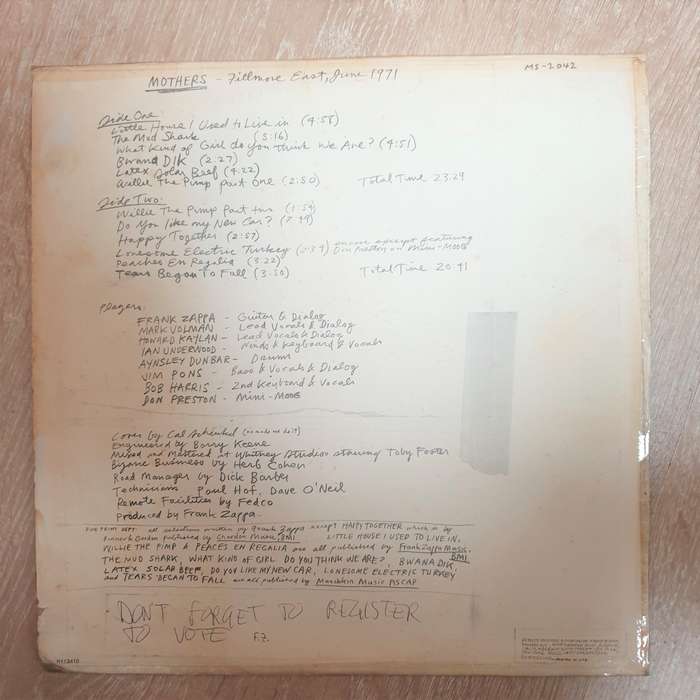 MOTHERS - Fillmore East, June 1971
MS-2042
Side One:
Little House I Used to Live in (4:58)
The Mud Shark (5:16)
What Kind of Girl do you Think We Are? (4:51)
Bwana DIK (2:27)
Latex Solar Beef (4:22)
Willie The Pimp Part One (2:50) Total Time 23:29
Side Two:
Willie The Pimp Part two (1:54)
Do You like my New Car? (7:49)
Happy Together (2:57)
Lonesome Electric Turkey (2:34) encore excerpt featuring Don Preston on Mini-Moog
Peaches En Regalia (3:22)
Tears Began To Fall (3:30) Total Time 20:41
Players:
FRANK ZAPPA - Guitar & Dialog
MARK VOLMAN - Lead Vocals & Dialog
HOWARD KAYLAN - Lead Vocals & Dialog
IAN UNDERWOOD - Winds & Keyboard & Vocals
AYNSLEY DUNBAR - Drums
JIM PONS - Bass & Vocals & Dialog
BOB HARRIS - 2nd Keyboard & Vocals
DON PRESTON - Mini-Moog
Cover by Cal Schenkel
Engineered by Barry Keene
Mixed and Mastered at Whitney Studios starring Toby Foster
Bizarre Business by Herb Cohen
Road Manager by Dick Barber
Technicians Paul Hof, Dave O'Neil
Remote Facilities by Fedco
Produced by Frank Zappa
FINE PRINT DEPT: all selections written by Frank Zappa except HAPPY TOGETHER which is by
Bonner & Gordon Published by Chardon Music, BMI LITTLE HOUSE I USED TO LIVE IN,
WILLIE THE PIMP & PEACES EN REGALIA are all published by Frank Zappa Music, BMI
THE MUD SHARK, WHAT KIND OF GIRL DO YOU THINK WE ARE?, BWANA DIK,
LATEX SOLAR BEEF, DO YOU LIKE MY NEW CAR, LONESOME ELECTRIC TURKEY
and TEARS BEGAN TO FALL are all published by Munchkin Music ASCAP
DON'T FORGET TO REGISTER
TO VOTE F.Z.